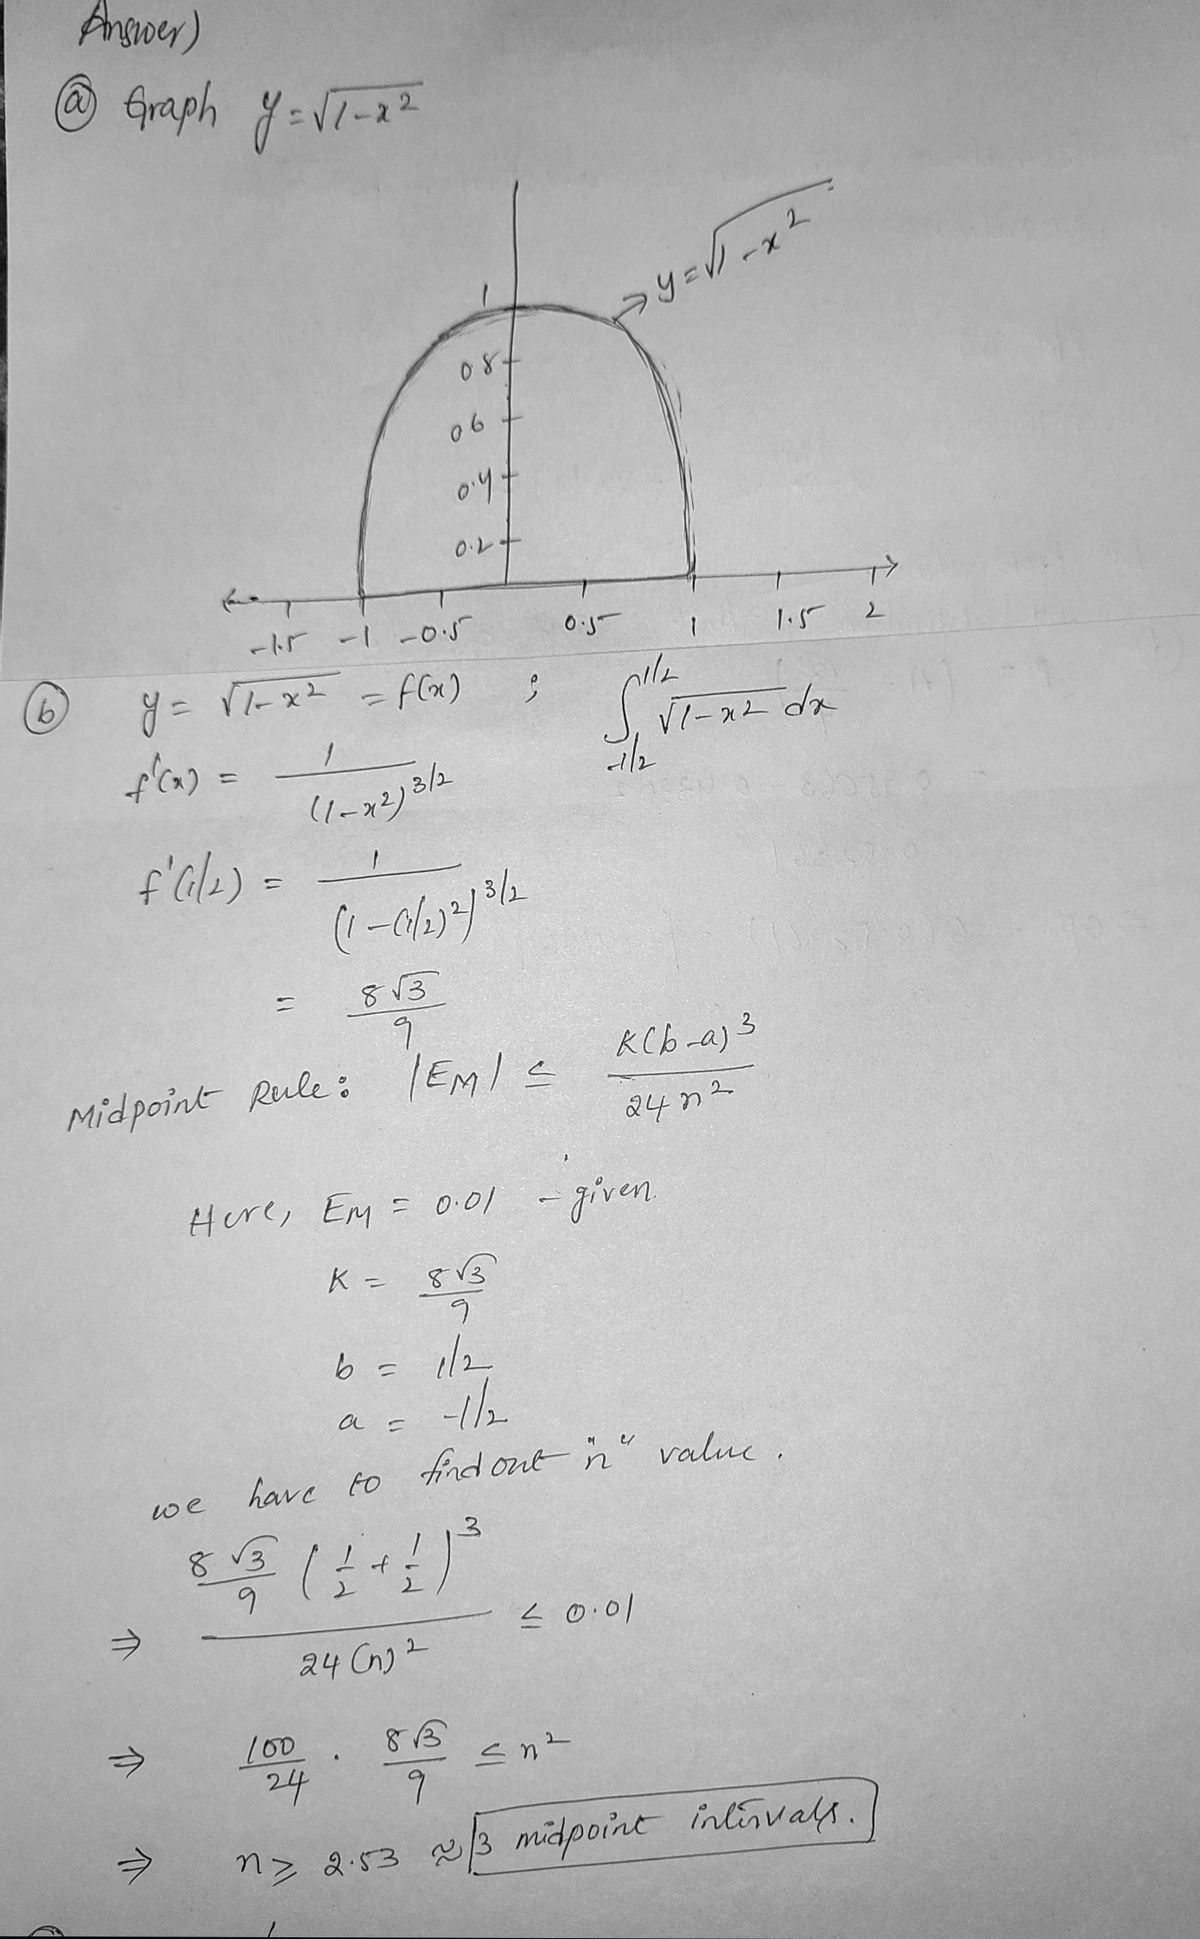 Answer)
ⓐ Graph y = √1-x²
→ y = √1-x²
1
0.8
0.6
0.4
0.2
-1.5 -1 -0.5 0.5 1 1.5 2
ⓑ y = √1-x² = f(x) ; ∫_{-1/2}^{1/2} √1-x² dx
f'(x) = 1/(1-x²)^{3/2}
f'(1/2) = 1/(1-(1/2)²)^{3/2}
= 8√3/9
Midpoint Rule: |EM| ≤ K(b-a)³/24n²
Here, EM = 0.01 - given.
K = 8√3/9
b = 1/2
a = -1/2
we have to find out "n" value.
⇒ 8√3/9 (1/2 + 1/2)³ / 24(n)² ≤ 0.01
⇒ 100/24 . 8√3/9 ≤ n²
⇒ n ≥ 2.53 ≈ 3 midpoint intervals.